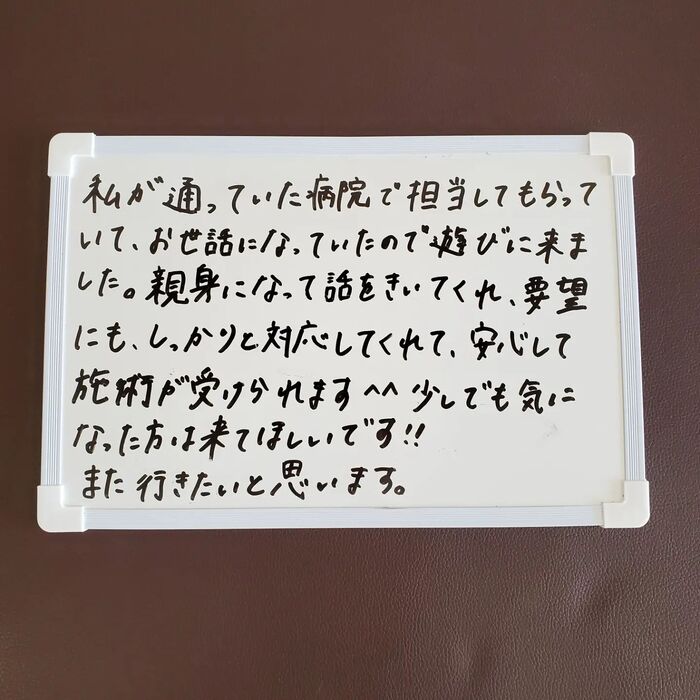 私が通っていた病院で担当してもらって
いて、お世話になっていたので遊びに来ま
した。親身になって話をきいてくれ、要望
にも、しっかりと対応してくれて、安心して
施術が受けられます^^ 少しでも気に
なった方は来てほしいです!!
また行きたいと思います。